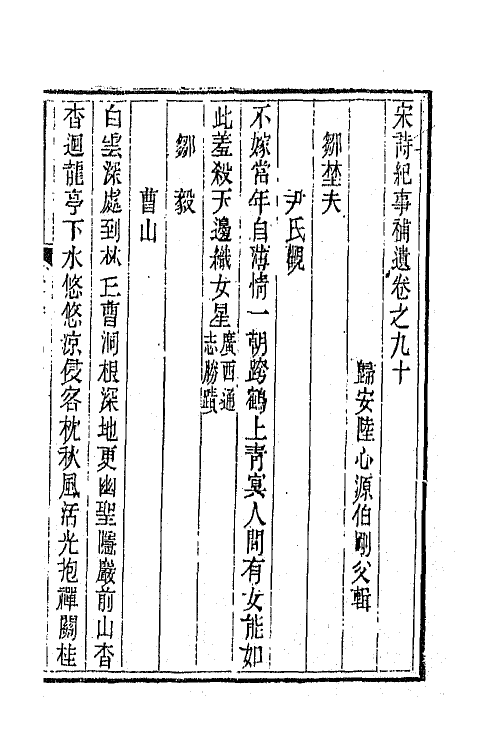 宋詩紀事補遺卷之九十
歸安陸心源伯剛父輯
鄒埜夫
尹氏觀
不嫁當年自薄情一朝跨鶴上青㝠人間有女能如
此羞殺天邊織女星廣西通志勝蹟
鄒毅
曹山
白雲深處到林丘曹洞根深地更幽聖隱巖前山杳
杳迴龍亭下水悠悠涼侵客枕秋風活光抱禪關桂